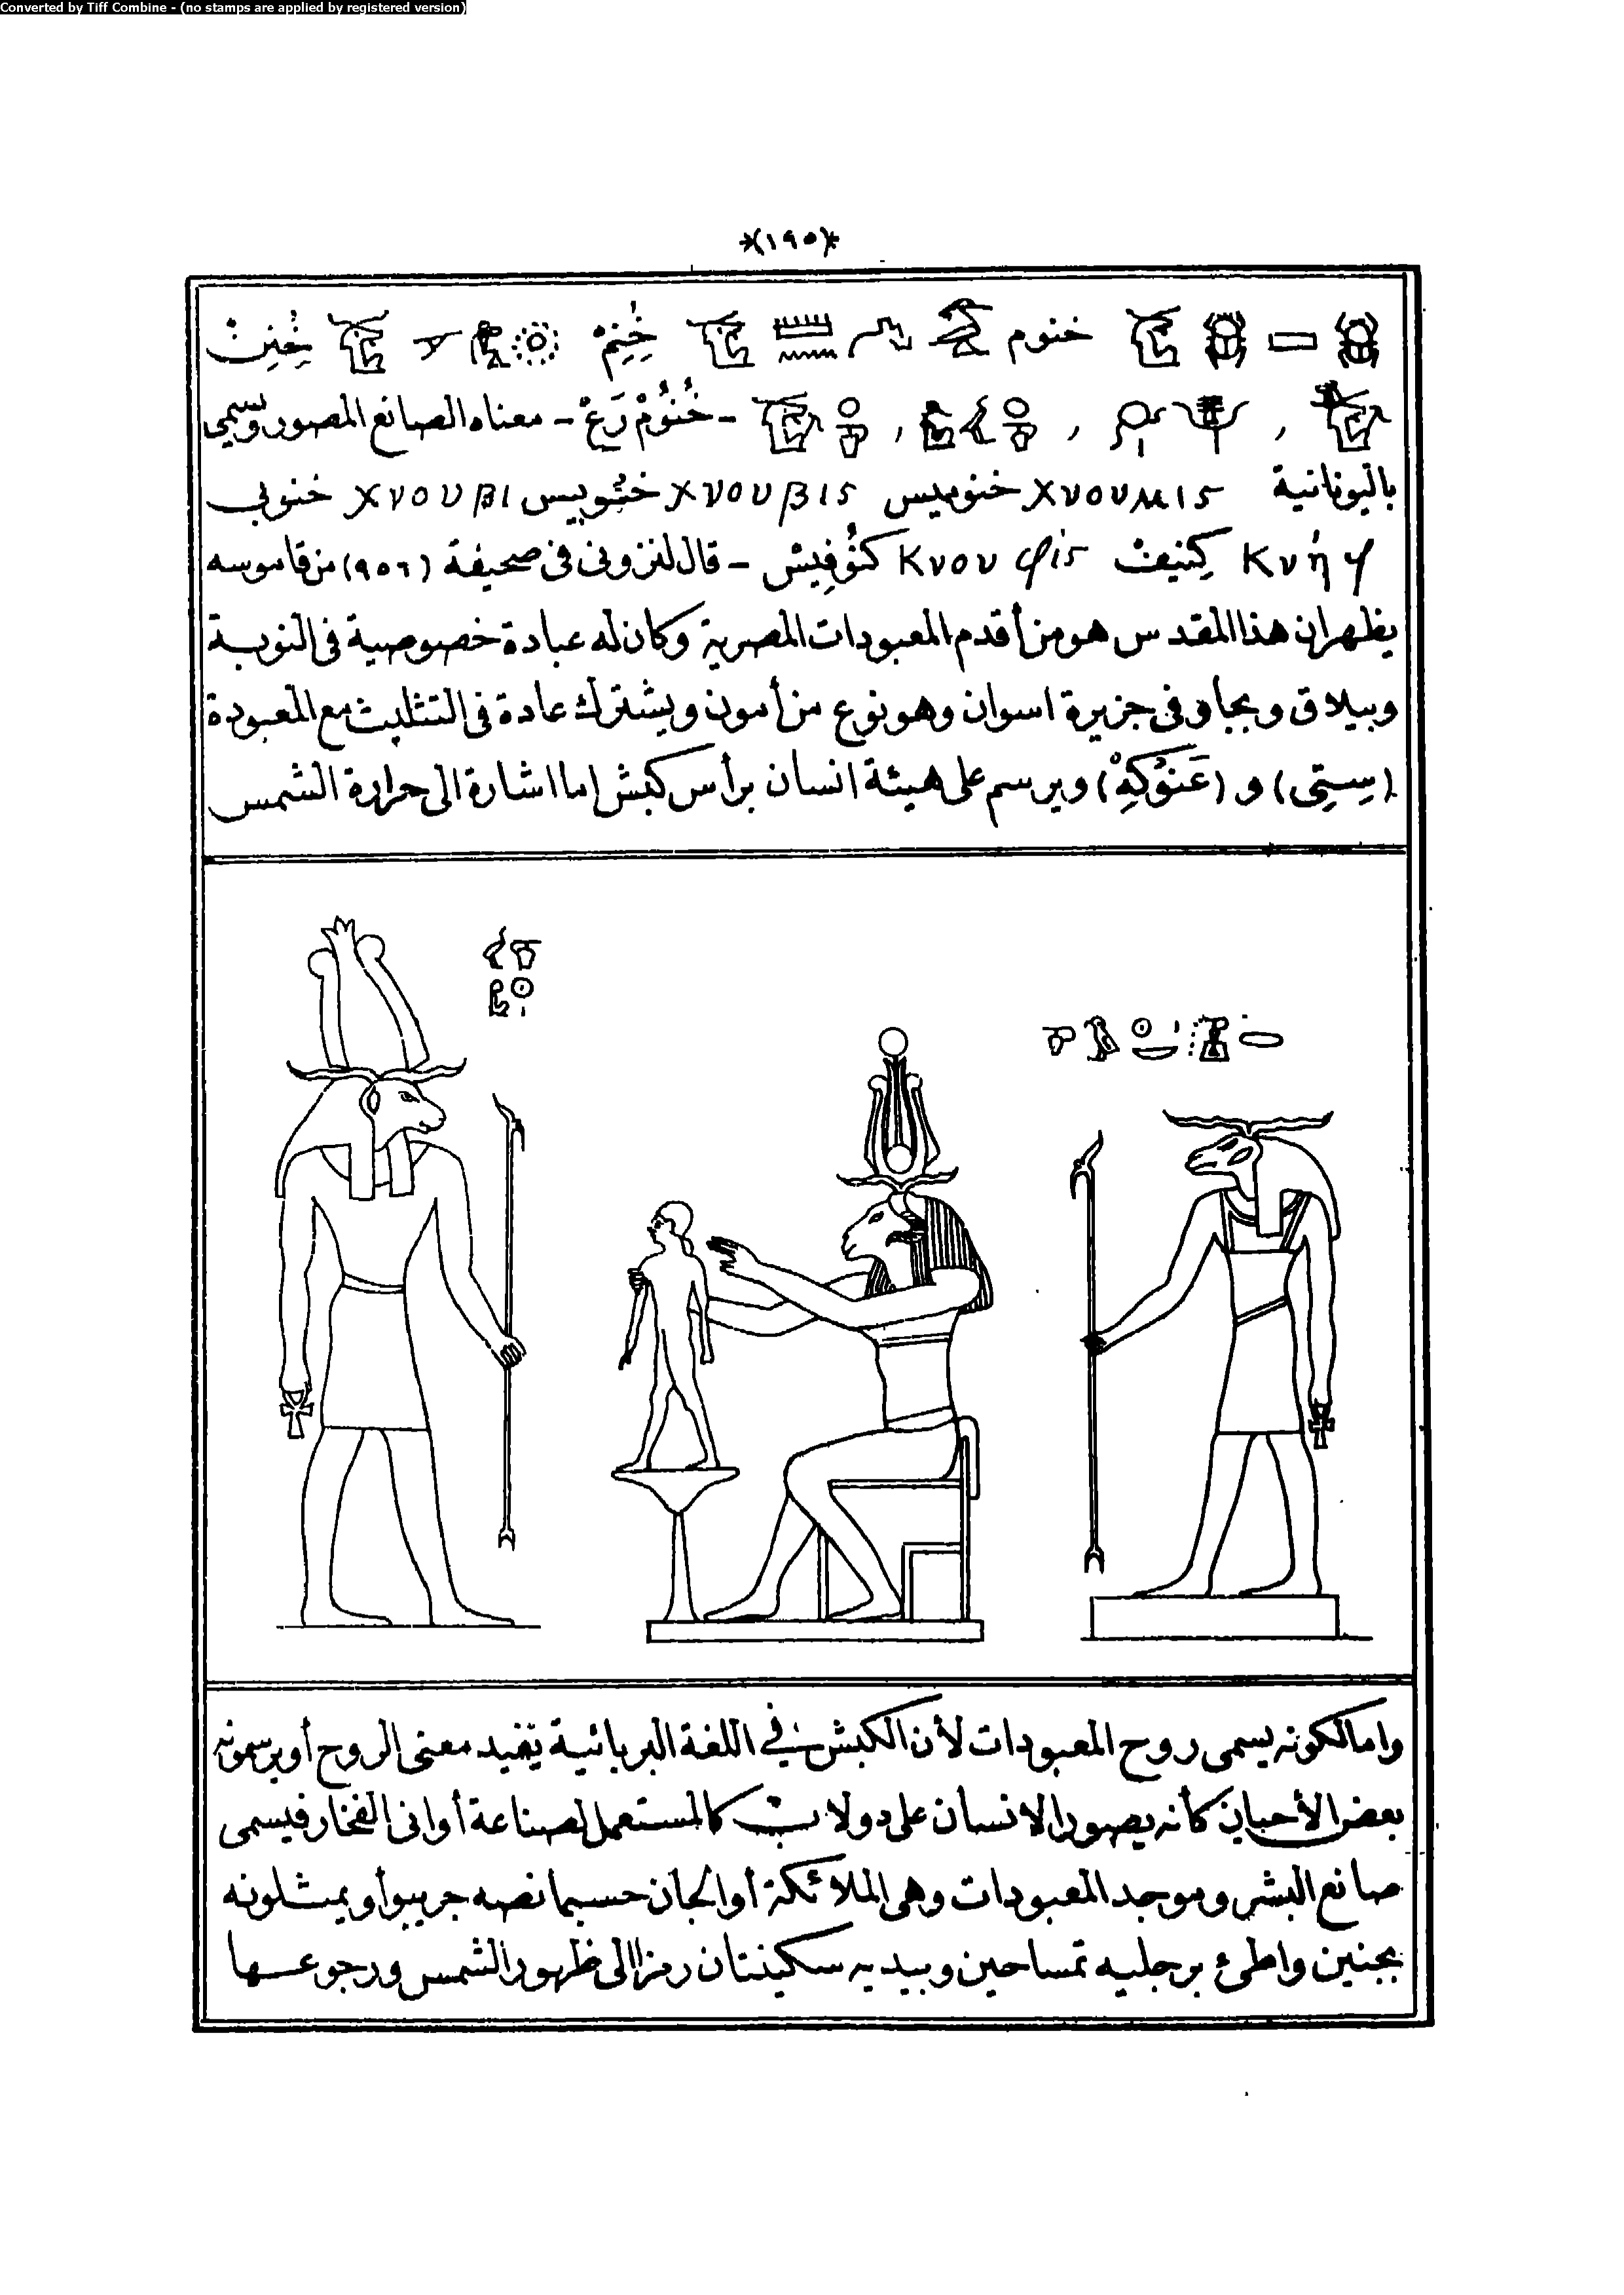 Converted by Tiff Combine - (no stamps are applied by registered version)
*(١٩٥)*
خنوم خِنِمْ خِنِتْ
- خُنُومْ رَعْ - معناه الصانع المصور ويسمى
باليونانية Χνουμις خنوميس Χνουβις خنوبيس Χνουβι خنوبى
Κνήφ كِنيفْ Κνουφις كنُوفِيسْ - قال لنزونى فى صحيفة (٩٥٦) من قاموسه
يظهر ان هذا المقدس هو من أقدم المعبودات المصرية وكان له عبادة خصوصية فى النوبة
وبيلاق وبجاو فى جزيرة اسوان وهو نوع من أمون ويشترك عادة فى التثليث مع المعبودة
(سِتِى) و (عَنُوكِهْ) ويرسم على هيئة انسان برأس كبش اما اشارة الى حرارة الشمس
واما لكونه يسمى روح المعبودات لأن الكبش فى اللغة البربائية يفيد معنى الروح أو يرسمونه
بعض الأحيان كأنه يصور الانسان على دولاب كالمستعمل لصناعة أوانى الفخار فيسمى
صانع البشر وموجد المعبودات وهى الملائكة أو الجان حسبما نصه جريبو أو يمثلونه
بجنين واطئ برجليه تمساحين وبيديه سكينتان رمزا الى ظهور الشمس ورجوعها